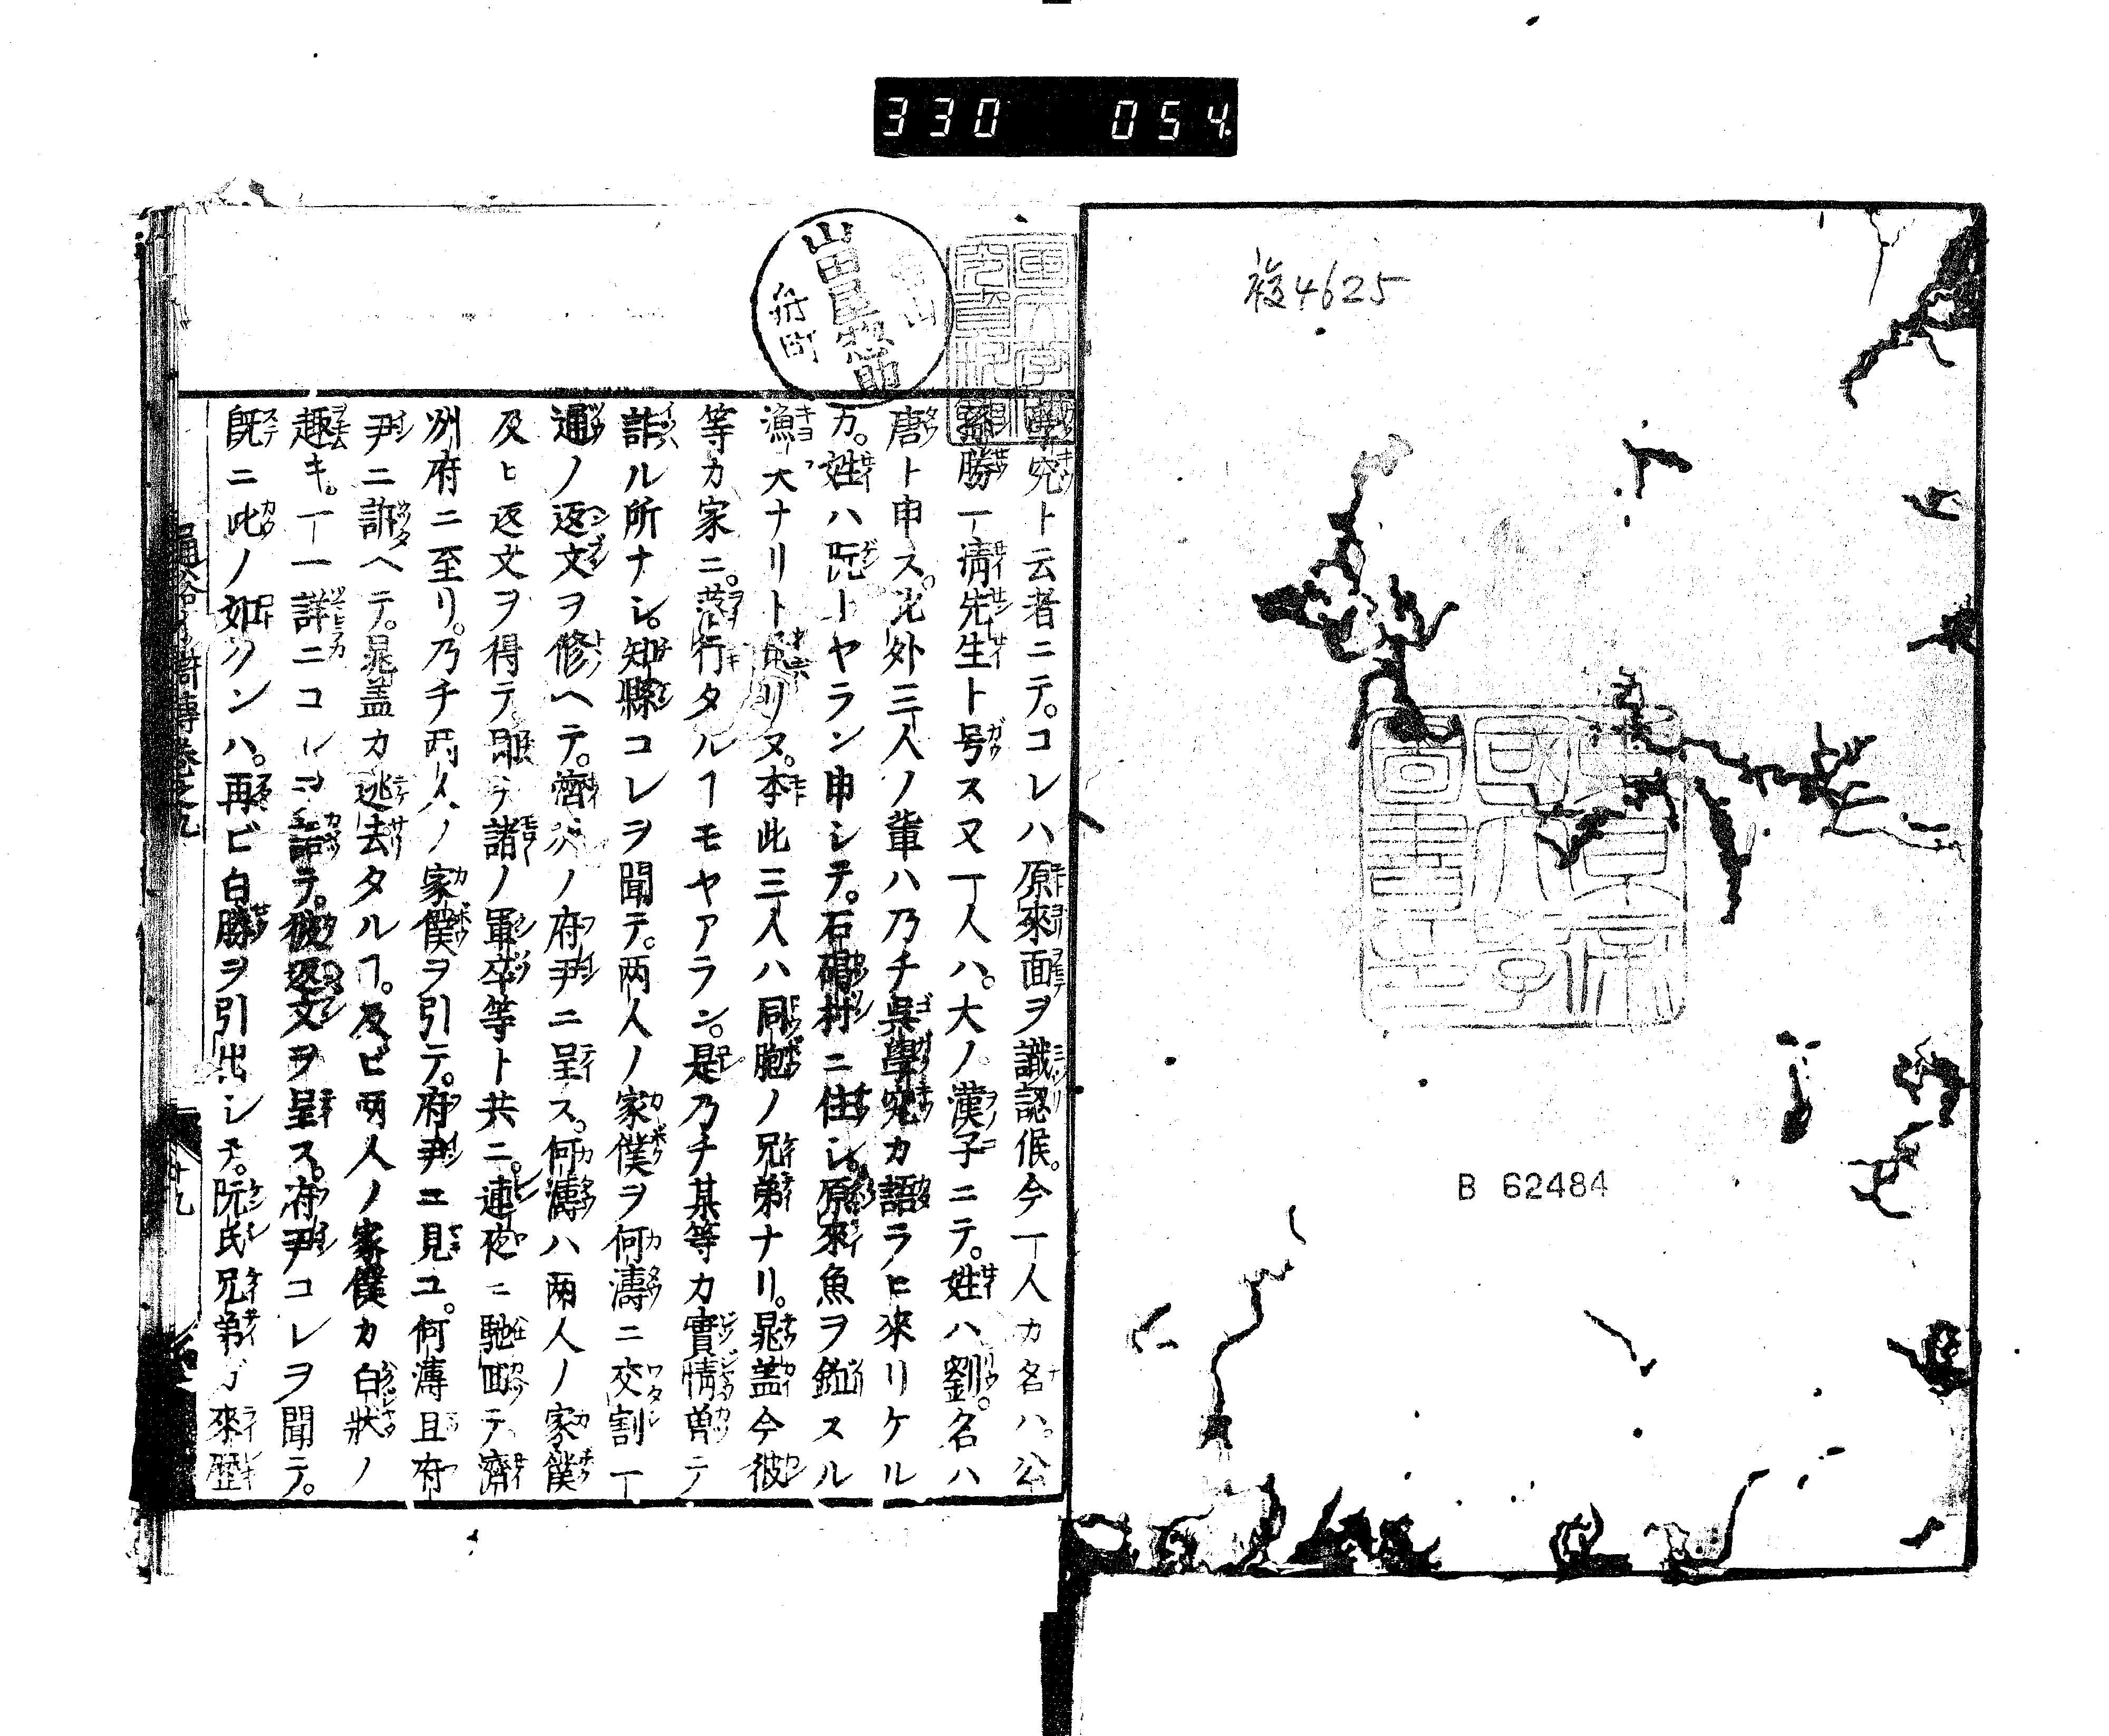 330 054
複4625
東京
國大學
圖書
B 62484
山田屋惣助
府町
學究ト云者ニテ。コレハ原來面ヲ識認候。今一人カ名ハ。公
孫勝一清先生ト号ス又一人ハ。大ノ漢子ニテ。姓ハ劉。名ハ
唐ト申ス。此外三人ノ輩ハ乃チ吳學究カ語ラヒ來リケル
カ。姓ハ阮トヤラン申シテ。石碣村ニ住シ。原來魚ヲ鉤スル
漁夫ナリトリヌ。本此三人ハ同胞ノ兄弟ナリ。晁盖今彼
等カ家ニ。落行タルヿモヤアラン。是乃チ某等カ實情曽テ
詐ル所ナシ。知縣コレヲ聞テ。両人ノ家僕ヲ何濤ニ交割一
通ノ返文ヲ修ヘテ。濟州ノ府尹ニ呈ス。何濤ハ両人ノ家僕
及ヒ返文ヲ得テ。即テ諸ノ軍卒等ト共ニ。連夜ニ馳囬テ濟
州府ニ至リ。乃チ両人ノ家僕ヲ引テ。府尹ニ見ユ。何濤且府
尹ニ訴ヘテ。晁盖カ逃去タルヿ。及ビ両人ノ家僕カ白狀ノ
趣キ。一一詳ニコレヲ語テ。彼返文ヲ呈ス。府尹コレヲ聞テ。
既ニ此ノ如クンハ。再ビ白勝ヲ引出シテ。阮氏兄弟カ來歷
水滸傳卷之九
廿九